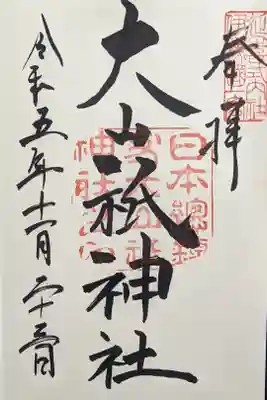 奉拝
日本總鎮
守大山祇
大山祇神社
令和五年十一月二十三日